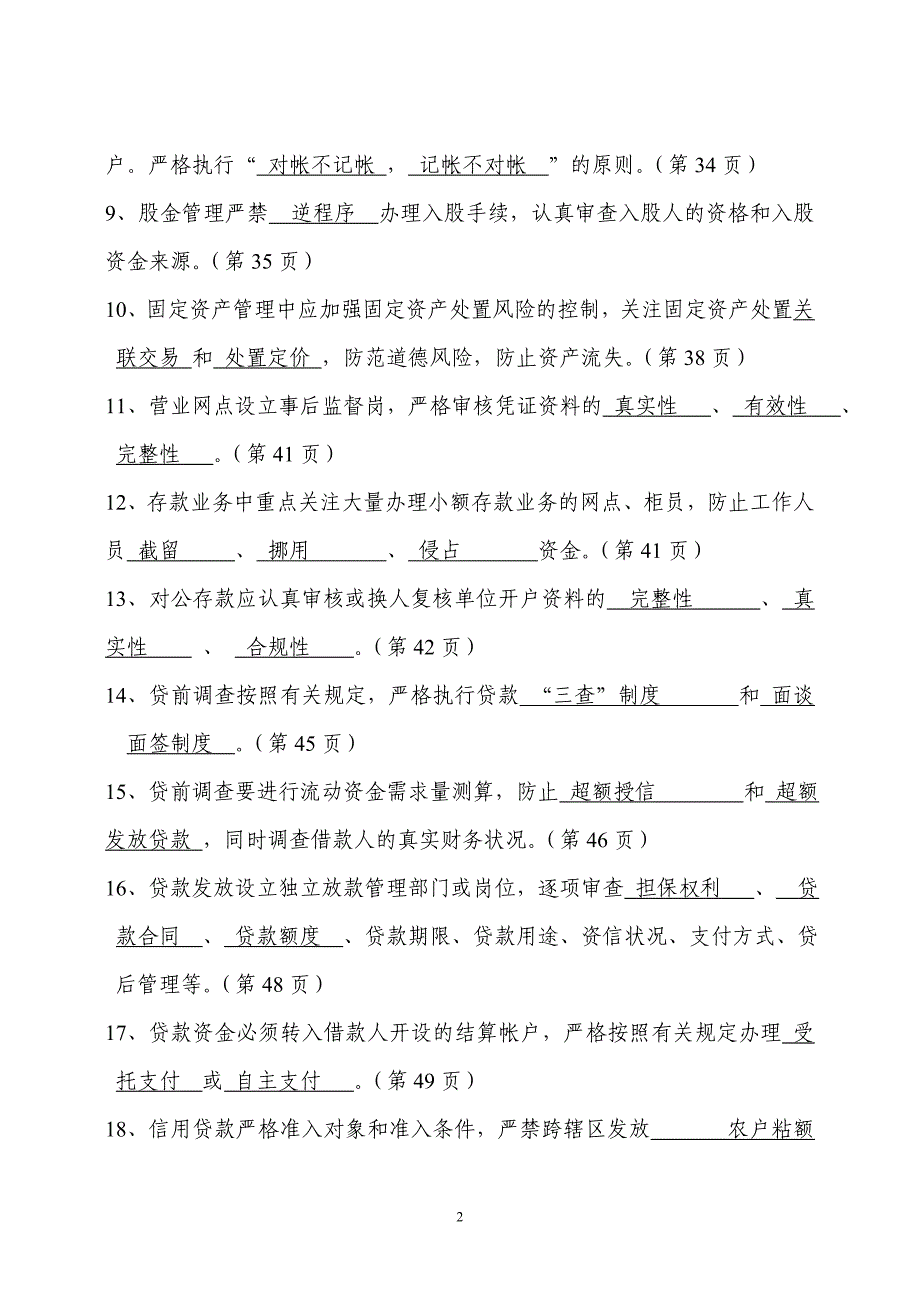 户。严格执行“ 对帐不记帐 ， 记帐不对帐 ”的原则。（第 34 页）
9、股金管理严禁 逆程序 办理入股手续，认真审查入股人的资格和入股
资金来源。（第 35 页）
10、固定资产管理中应加强固定资产处置风险的控制，关注固定资产处置关
联交易 和 处置定价 ，防范道德风险，防止资产流失。（第 38 页）
11、营业网点设立事后监督岗，严格审核凭证资料的 真实性 、 有效性 、
完整性 。（第 41 页）
12、存款业务中重点关注大量办理小额存款业务的网点、柜员，防止工作人
员 截留 、 挪用 、 侵占 资金。（第 41 页）
13、对公存款应认真审核或换人复核单位开户资料的 完整性 、 真
实性 、 合规性 。（第 42 页）
14、贷前调查按照有关规定，严格执行贷款 “三查”制度 和 面谈
面签制度 。（第 45 页）
15、贷前调查要进行流动资金需求量测算，防止 超额授信 和 超额
发放贷款 ，同时调查借款人的真实财务状况。（第 46 页）
16、贷款发放设立独立放款管理部门或岗位，逐项审查 担保权利 、 贷
款合同 、 贷款额度 、贷款期限、贷款用途、资信状况、支付方式、贷
后管理等。（第 48 页）
17、贷款资金必须转入借款人开设的结算帐户，严格按照有关规定办理 受
托支付 或 自主支付 。（第 49 页）
18、信用贷款严格准入对象和准入条件，严禁跨辖区发放 农户粘额
2